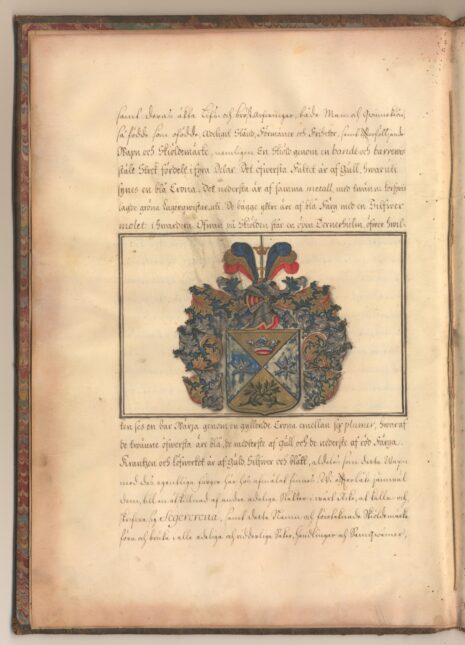 samt deras äkta Lifs och bröstarfvingar, både Man och Qvinnokön,
så födde som ofödde, Adeligit Stånd, Förmåner och Friheter, samt
Wapn och Skiöldemärke, nämligen En Skiöld genom en bande och barrevis
stält Streck fördelt i fyra Delar. Det öfversta Fältet är af Gull, hvaruti
synes en blå Crona. Det nedersta är af samma metall, med twänne
lagde gröna Lagerqwistar uti. De bägge yttre äre af blå Färg med en Silfwer
molet i hwardera. Ofwan på Skiölden står en öpen Tornerhielm, öfwer hwil-
ten ses en bar Wärja genom en gyllende Crona emellan sex plumer, hvaraf
de twänne öfwersta äre blå, de medlerste af Gull och de nederste af röd Färga.
Krantzen och Löfwerket är af Guld Silfwer och blått, aldeles som detta Wapn
med des egentliga färger här hos afmålat finnes. Wi efterlåte jämwäl
dem, till en åtskilnad af andre adelige Ätter i wårt Rike, at kalla och
skrifwa sig Segercrona, samt detta Namn och förteknade Skiöldemärke
föra och bruka i alle adelige och ridderlige Saker, handlingar och